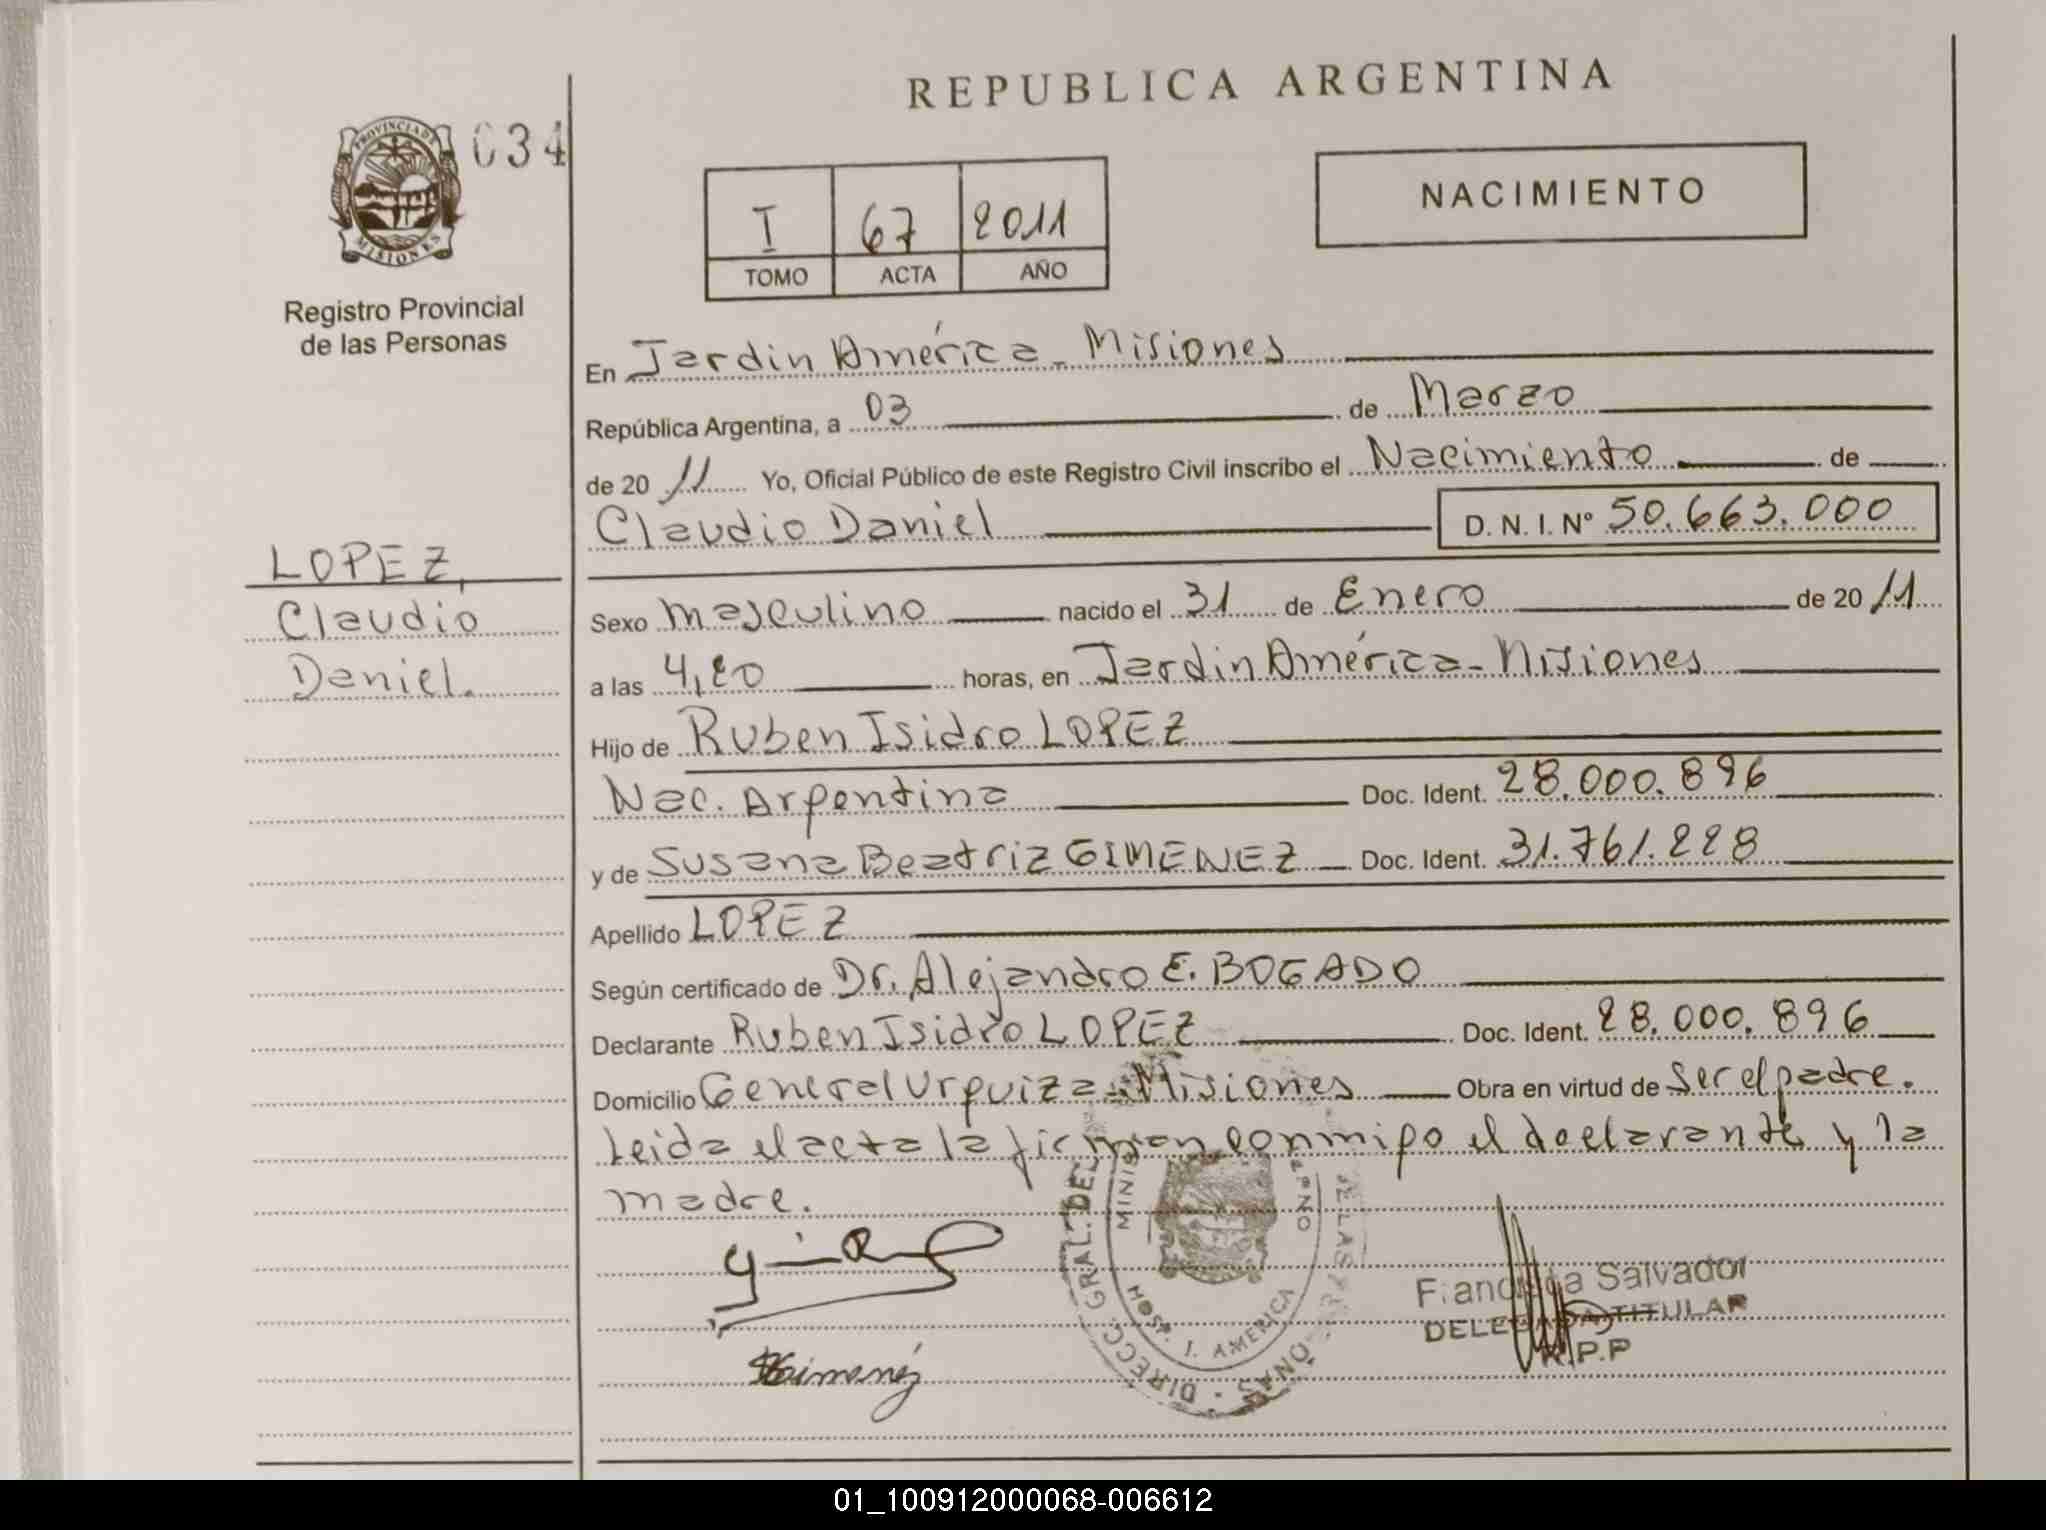 REPUBLICA ARGENTINA
PROVINCIA DE
MISIONES
034
Registro Provincial
de las Personas
I 67 2011
TOMO ACTA AÑO
NACIMIENTO
En Jardin América - Misiones
República Argentina, a 03 de Marzo
de 20 11 Yo, Oficial Público de este Registro Civil inscribo el Nacimiento de
Claudio Daniel D. N. I. Nº 50.663.000
LOPEZ,
Claudio
Daniel.
Sexo masculino nacido el 31 de Enero de 20 11
a las 4,20 horas, en Jardin América - Misiones
Hijo de Ruben Isidro LOPEZ
Nac. Argentina Doc. Ident. 28.000.896
y de Susana Beatriz GIMENEZ Doc. Ident. 31.761.228
Apellido LOPEZ
Según certificado de Dr. Alejandro E. BOGADO
Declarante Ruben Isidro LOPEZ Doc. Ident. 28.000.896
Domicilio General Urquiza - Misiones Obra en virtud de Ser el padre.
Leida el acta la firman conmigo el declarante y la
madre.
DIRECC. GRAL. DEL
DE LAS
HOSP. J. AMERICA
Gimenéz
Francisca Salvador
DELEGADA TITULAR
R.P.P
01_100912000068-006612